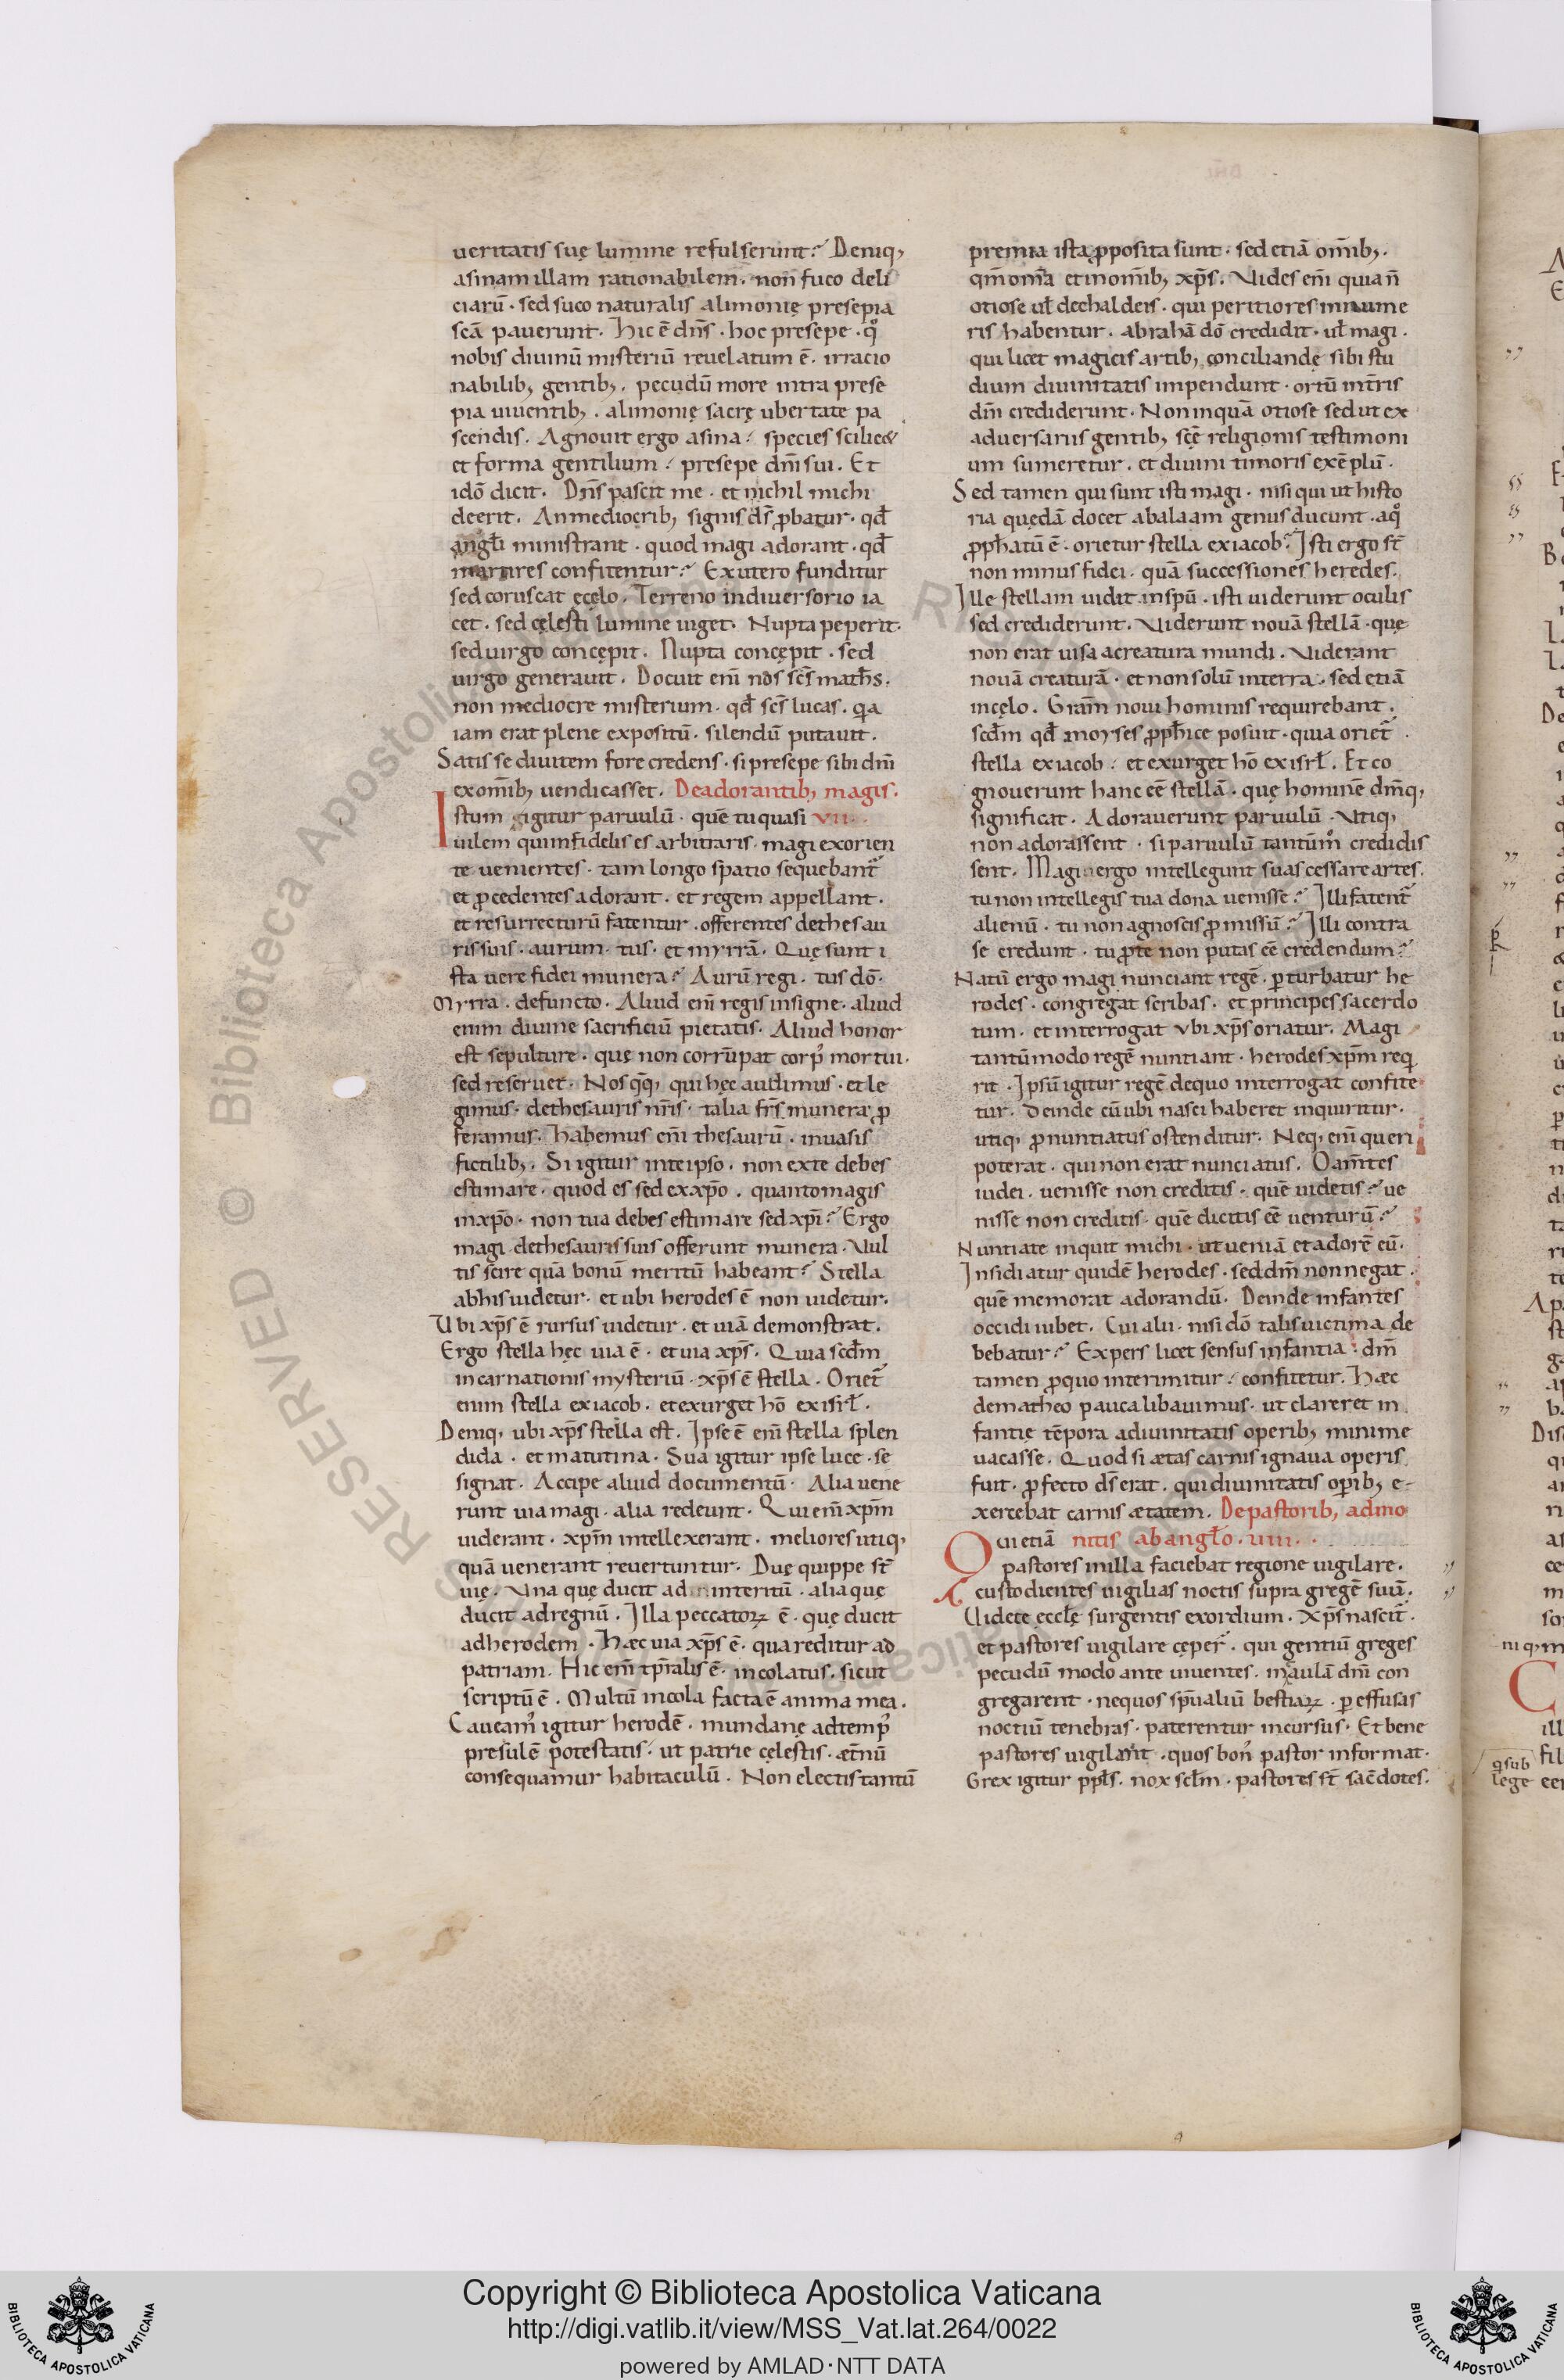 ueritatis suę lumine refulserunt? Deniq;
asinam illam rationabilem. non fuco deli
ciarū. sed suco naturalis alimonię presepia
scā pauerunt. Hic ē dn̄s. hoc presepe. qͦ
nobis diuinū misteriū reuelatum ē. irracio
nabilib; gentib;. pecudū more intra prese
pia uiuentib;. alimonię sacrę ubertate pa
scendis. Agnouit ergo asina? species scilicet
et forma gentilium? presepe dn̄i sui. Et
idō dicit. Dn̄s pascit me. et nichil michi
deerit. An mediocrib; signis ds̄ ꝓbatur. qđ
angl̄i ministrant. quod magi adorant. qđ
martires confitentur? Ex utero funditur
sed coruscat ecęlo. Terreno indiuersorio ia
cet. sed cęlesti lumine uiget. Nupta peperit.
sed uirgo concępit. Nupta concępit. sed
uirgo generauit. Docuit eni̅ nos sc̄s math̄s.
non mediocre misterium. qđ sc̄s lucas. q̢a
iam erat plene expositū. silendū putauit.
Satis se diuitem fore credens. si presepe sibi dn̄i
ex om̄ib; uendicasset. De adorantib; magis.
Istum gigitur paruulū. quē tu quasi VII.
uilem qui infidelis es arbitraris. magi ex orien
te uenientes. tam longo spatio sequebant᷑
et ꝓcedentes adorant. et regem appellant.
et resurrecturū fatentur. offerentes de thesau
ris suis. aurum. tus. et myrrā. Quę sunt i
sta uere fidei munera? Aurū regi. tus dō.
Myrra. defuncto. Aliud eni̅ regis insigne. aliud
enim diuine sacrificiū pietatis. Aliud honor
est sepulture. quę non corrūpat corpꝰ mortui.
sed reseruet. Nos q̄q; qui hęc audimus. et le
gimus. de thesauris nr̄is. talia fr̄s munera ꝓ
feramus. Habemus eni̅ thesaurū. in uasis
fictilib;. Si igitur in te ipso. non ex te debes
estimare. quod es sed ex xp̄o. quanto magis
in xp̄o. non tua debes estimare sed xp̄i? Ergo
magi de thesauris suis offerunt munera. Uul
tis scire quā bonū meritū habeant? Stella
ab his uidetur. et ubi herodes ē non uidetur.
Ubi xp̄s ē rursus uidetur. et uiā demonstrat.
Ergo stella hęc uia ē. et uia xp̄s. Quia scđm
incarnationis mysteriū. xp̄s ē stella. Oriet᷑
enim stella ex iacob. et exurget hō ex isrl̄.
Deniq; ubi xp̄s stella est. Ipse ē eni̅ stella splen
dida. et matutina. Sua igitur ipse luce. se
signat. Accipe aliud documentū. Alia uene
runt uia magi. alia redeunt. Qui eni̅ xp̄m
uiderant. xp̄m intellexerant. meliores utiq;
quā uenerant reuertuntur. Duę quippe st̄
uię. Una quę ducit ad interitū. alia quę
ducit ad regnū. Illa peccatoꝝ ē. quę ducit
ad herodem. Hæc uia xp̄s ē. qua reditur ad
patriam. Hic eni̅ tp̄ralis ē. incolatus. sicut
scriptū ē. Multū incola facta ē anima mea.
Caueamꝰ igitur herodē. mundanę ad tempꝰ
presulē potestatis. ut patrie cęlestis. æt̄nū
consequamur habitaculū. Non electis tantū
premia ista ꝓposita sunt. sed etiā om̄ib;.
qm̄ om̄ia et in om̄ib; xp̄s. Uides eni̅ quia n̄
otiose ul̄ de chaldeis. qui peritiores in nume
ris habentur. abrahā dō credidit. ul̄ magi.
qui licet magicis artib; conciliandę sibi stu
dium diuinitatis impendunt. ortū int̄ris
dn̄i crediderunt. Non inquā otiose sed ut ex
aduersariis gentib; scę̄ religionis testimoni
um sumeretur. et diuini timoris exēplū.
Sed tamen qui sunt isti magi. nisi qui ut histo
ria quędā docet a balaam genus ducunt. a qͦ
ꝓph̄atū ē. orietur stella ex iacob? Isti ergo st̄
non minus fidei. quā successiones heredes.
Ille stellam uidit in spū. isti uiderunt oculis
sed crediderunt. Uiderunt nouā stellā. quę
non erat uisa a creatura mundi. Uiderant
nouā creaturā. et non solū in terra. sed etiā
in cęlo. Gram̄ noui hominis requirebant.
scđm qđ moyses ꝓph̄ice posuit. quia oriet᷑.
stella ex iacob? et exurget hō ex isrl̄. Et co
gnouerunt hanc eē stellā. quę hominē dm̄q;
significat. Adorauerunt paruulū. Utiq;
non adorassent. si paruulū tantūmͦ credidis
sent. Magi ergo intellegunt suas cessare artes.
tu non intellegis tua dona uenisse? Illi fatent᷑
alienū. tu non agnoscis ꝓmissū? Illi contra
se credunt. tu ꝓ te non putas eē credendum?
Natū ergo magi nunciant regē. ꝑturbatur he
rodes. congregat scribas. et principes sacerdo
tum. et interrogat ubi xp̄s oriatur. Magi
tantūmodo regē nuntiant. herodes xp̄m req̢
rit. Ipsū igitur regē de quo interrogat confite
tur. Deinde cū ubi nasci haberet inquiritur.
utiq; ꝓnuntiatus ostenditur. Neq; eni̅ queri
poterat. qui non erat nunciatus. O am̄tes
iudei. uenisse non creditis. quē uidetis? ue
nisse non creditis. quē dicitis eē uenturū?
Nuntiate inquit michi. ut ueniā et adorē eū.
Insidiatur quidē herodes. sed dm̄ non negat.
quē memorat adorandū. Deinde infantes
occidi iubet. Cui alii. nisi dō talis uictima de
bebatur? Expers licet sensus infantia. dm̄
tamen ꝓ quo interimitur? confitetur. Hæc
de matheo pauca libauimus. ut clareret in
fantię tēpora a diuinitatis operib; minime
uacasse. Quod si ætas carnis ignaua operis
fuit. ꝓfecto ds̄ erat. qui diuinitatis opib; e-
xercebat carnis ætatem. De pastorib; admo
Qui etiā nitis ab angl̄o. VIII.
pastores in illa faciebat regione uigilare.
custodientes uigilias noctis supra gregē suū.
Uidete eccl̄ę surgentis exordium. Xp̄s nascit᷑.
et pastores uigilare cęper̄. qui gentiū greges
pecudū modo ante uiuentes. in aulā dn̄i con
gregarent. ne quos sp̄ualiū bestiaꝝ. ꝑ effusas
noctiū tenebras. paterentur incursus. Et bene
pastores uigilant. quos bonꝰ pastor informat.
Grex igitur ppl̄s. nox scl̄m. pastores st̄ sac̄dotes.
sub
lege
© Biblioteca Apostolica Vaticana
RESERVED
Copyright © Biblioteca Apostolica Vaticana
http://digi.vatlib.it/view/MSS_Vat.lat.264/0022
powered by AMLAD·NTT DATA
BIBLIOTECA APOSTOLICA VATICANA
BIBLIOTECA APOSTOLICA VATICANA